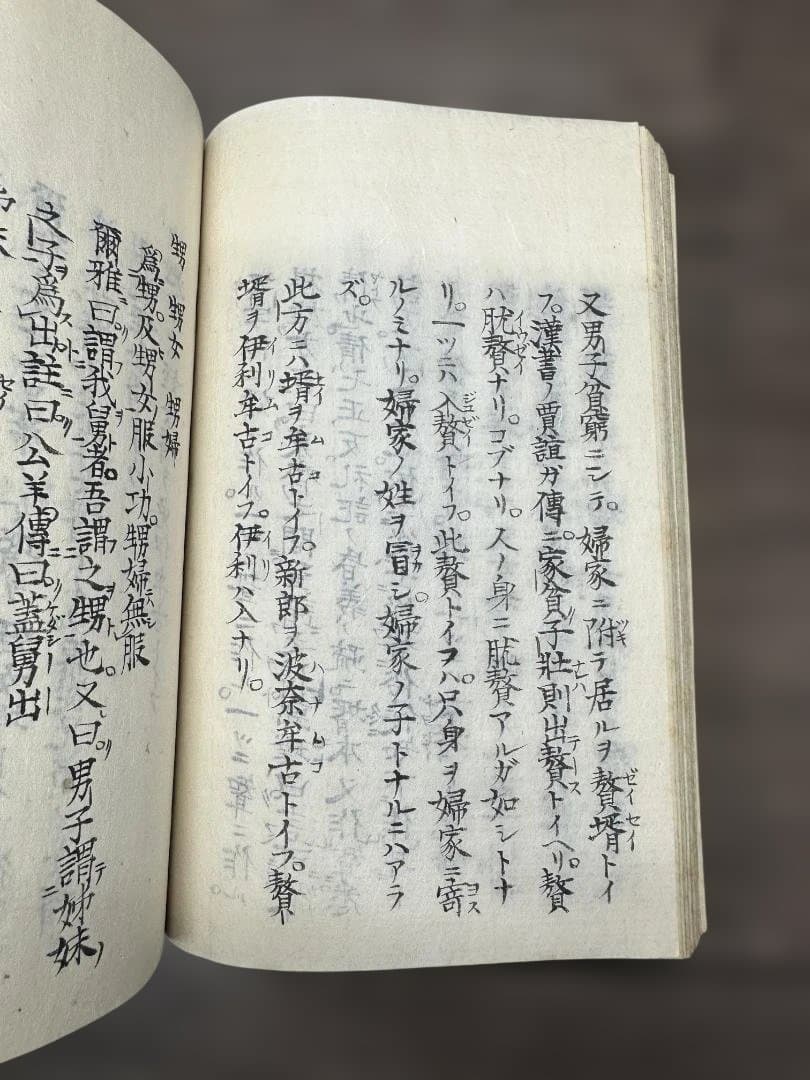 又男子貧窮ニシテ。婦家ニ附テ居ルヲ贅壻トイ
フ。漢書ノ賈誼ガ傳ニ。家貧子壯則出贅トイヘリ。贅
ハ肬贅ナリ。コブナリ。人ノ身ニ肬贅アルガ如シトナ
リ。一ツニハ入贅トイフ。此贅トイフハ。只身ヲ婦家ニ寄
ルノミナリ。婦家ノ姓ヲ冒シ。婦家ノ子トナルニハアラ
ズ。
此方ニハ壻ヲ牟古トイフ。新郎ヲ波奈牟古トイフ。贅
壻ヲ伊利牟古トイフ。伊利ハ入ナリ。
甥 甥女 甥婦
爲甥及甥女服小功。甥婦無服
爾雅曰謂我舅者。吾謂之甥也。又曰男子謂姊妹
之子爲出註曰公羊傳曰蓋舅出